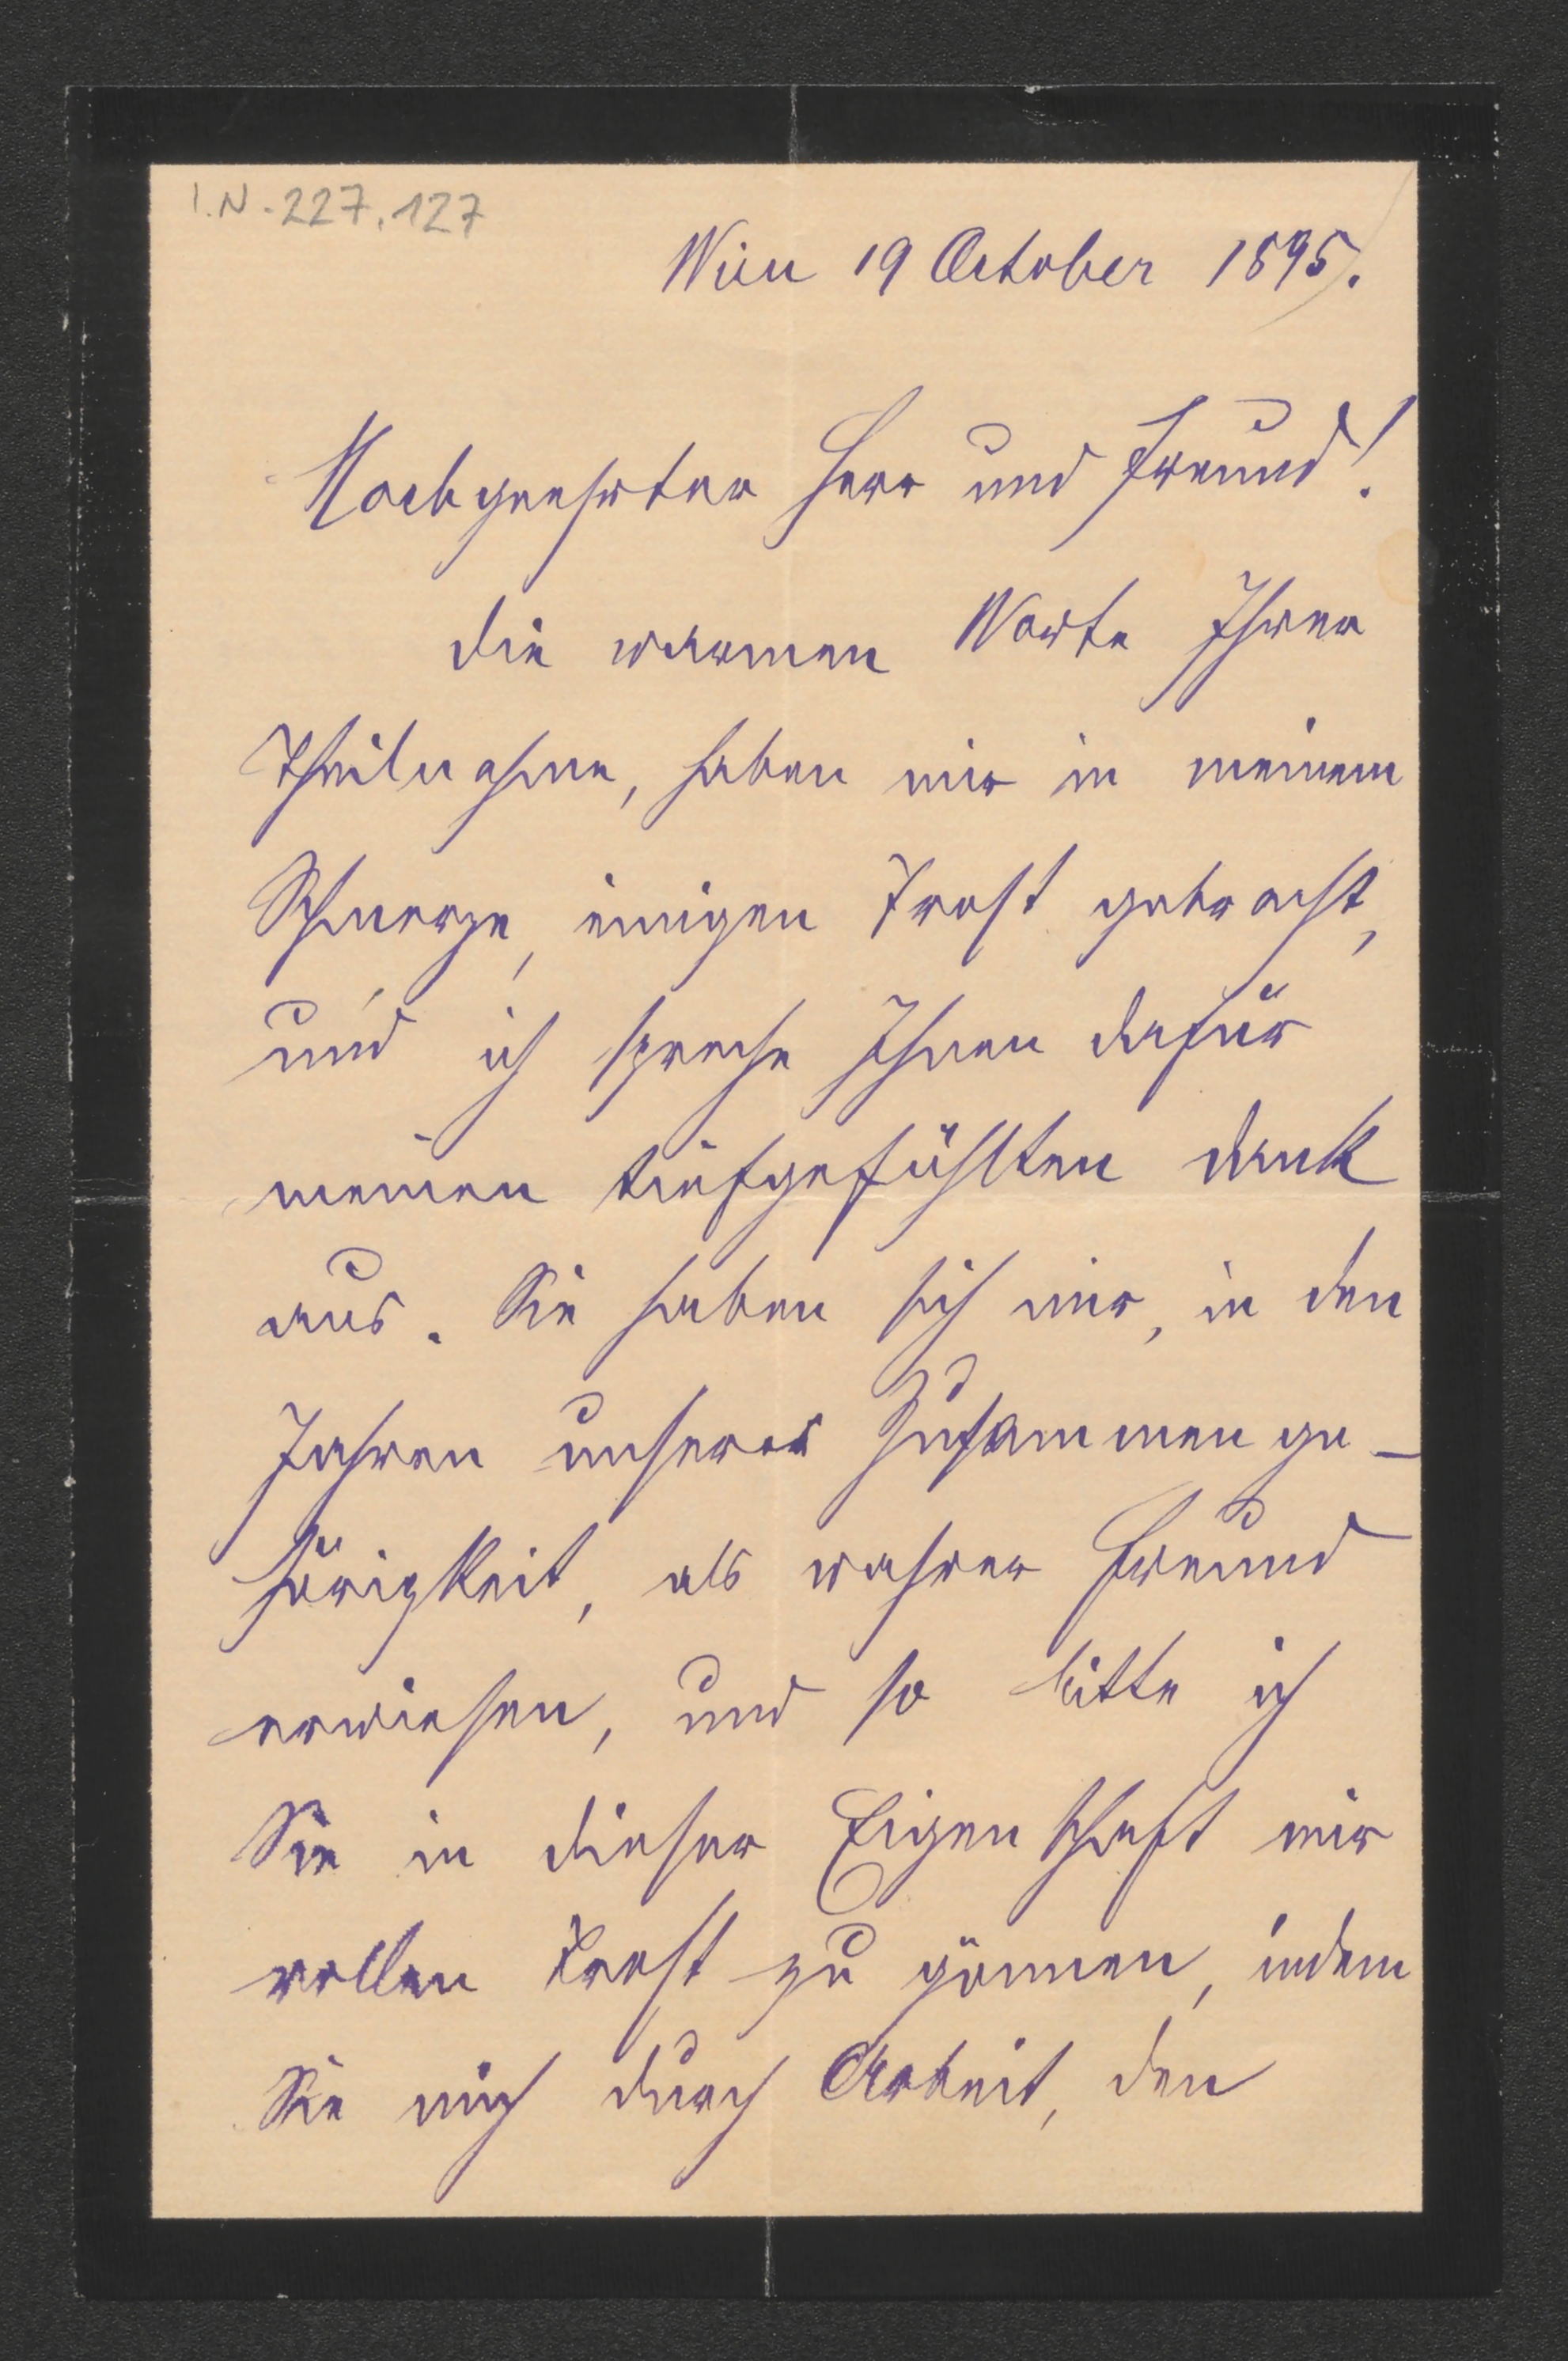 I.N. 227.127
Wien 19 October 1895.
Hochgeehrter Herr und Freund!
Die warmen Worte Ihrer
Theilnahme, haben mir in meinem
Schmerze, einigen Trost gebracht,
und ich spreche Ihnen dafür
meinen tiefgefühlten Dank
aus. Sie haben sich mir, in den
Jahren unserer Zusammenge-
hörigkeit, als wahrer Freund
erwiesen, und so bitte ich
Sie in dieser Eigenschaft mir
vollen Trost zu gönnen, indem
Sie mich durch Arbeit, den